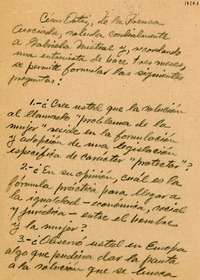 César Ortiz, de la Prensa
Asociada, saluda cordialmente
a Gabriela Mistral y, recordando
una entrevista de hace tres meses,
se permite formular las siguientes
preguntas:
1.-¿Cree usted que la solución
al llamado "problema de la
mujer" reside en la formulación
y adopción de una legislación
específica de carácter "protector"?
2.-¿En su opinión, cuál es la
fórmula práctica para llegar a
la igualdad - económica, social
y jurídica - entre el hombre
y la mujer?
3.-¿Observó usted en Europa
algo que pudiera dar la pauta
a la solución que se busca